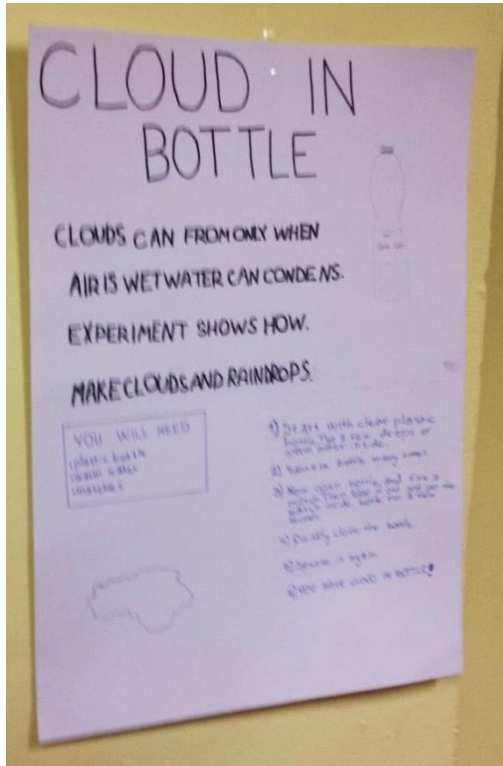 CLOUD IN
BOTTLE
CLOUDS CAN FROM ONLY WHEN
AIR IS WET WATER CAN CONDENS.
EXPERIMENT SHOWS HOW.
MAKE CLOUDS AND RAINDROPS.
YOU WILL NEED
plastic bottle
warm water
matches
1) Start with clear plastic
bottle. Put a few drops of
warm water inside.
2) Squeeze bottle many times
3) Now open bottle, and fire a
match. Then blow it out and put the
match inside bottle for a few
4) Quickly close the bottle.
5) Squeeze it again
6) YOU HAVE CLOUD IN BOTTLE!